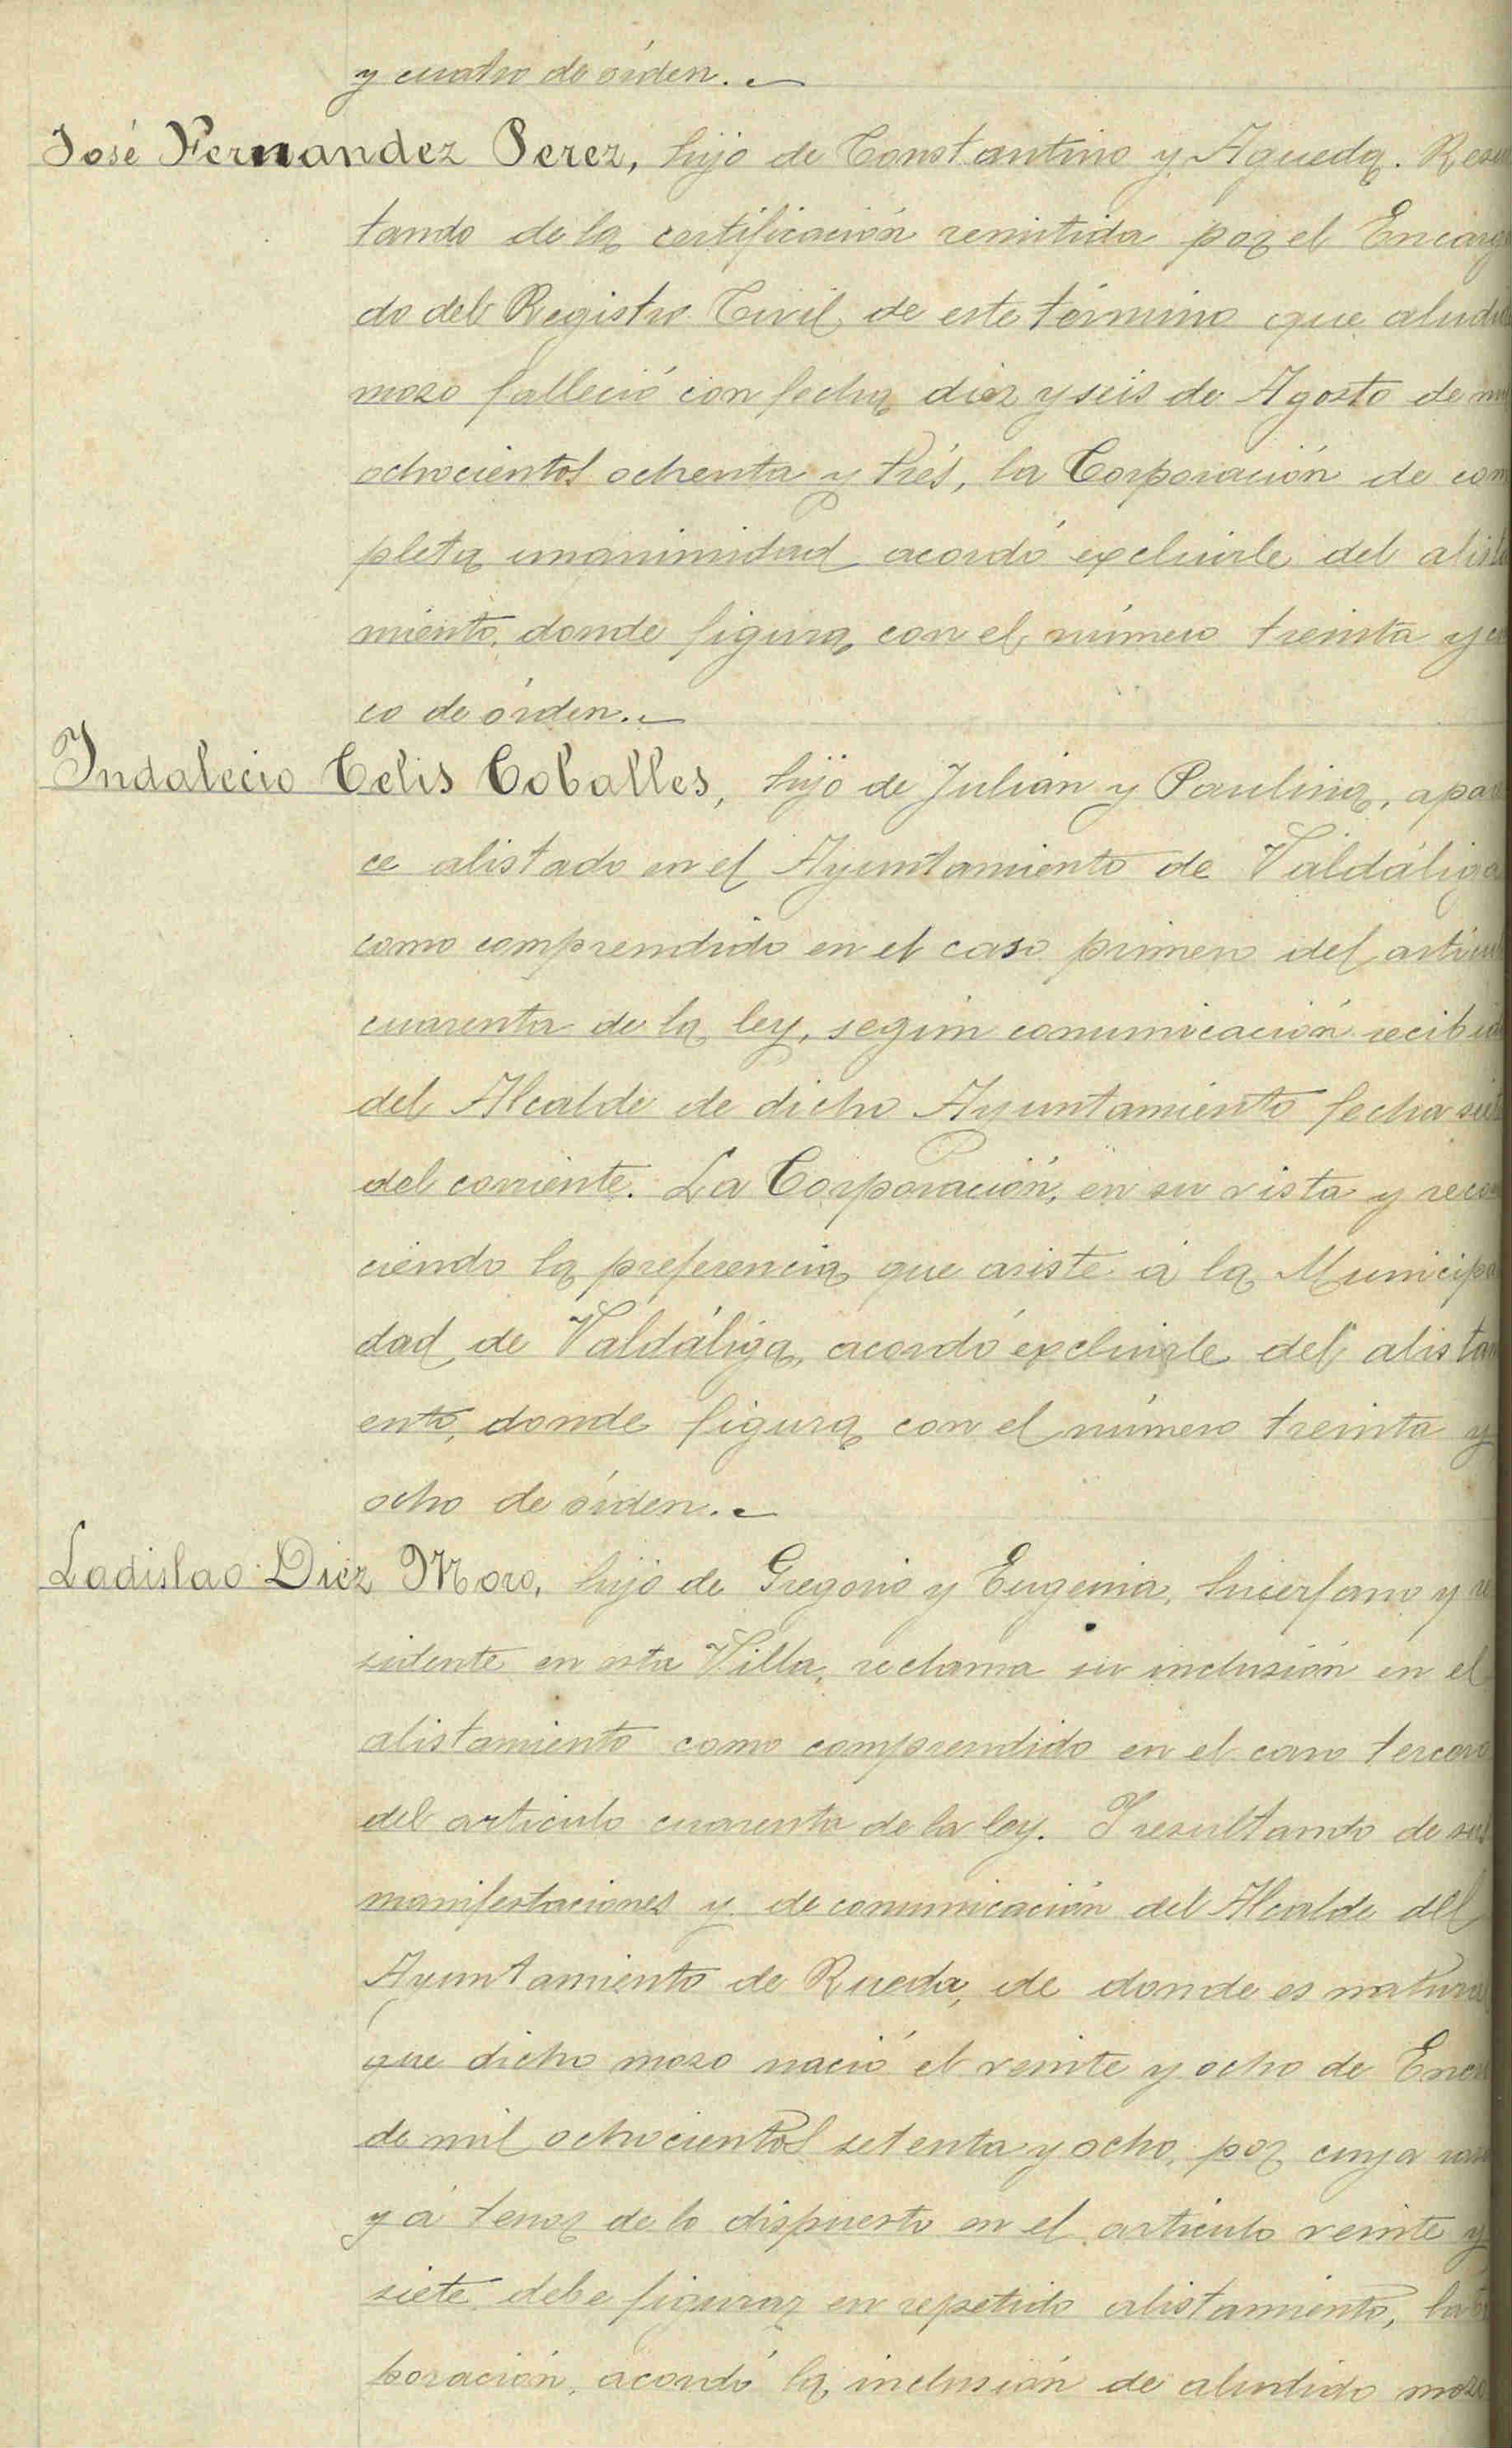 y cuatro de órden.
José Fernandez Perez, hijo de Constantino y Agueda. Resul
tando de la certificación remitida por el Encarga
do del Registro Civil de este término que aludido
mozo falleció con fecha diez y seis de Agosto de mil
ochocientos ochenta y trés, la Corporación de com
pleta unanimidad acordó excluirle del alista
miento, donde figura con el número treinta y cin
co de órden.
Indalecio Celis Coballes, hijo de Julián y Paulina, apare
ce alistado en el Ayuntamiento de Valdáliga
como comprendido en el caso primero del artícul
cuarenta de la ley, según comunicación recibid
del Alcalde de dicho Ayuntamiento fecha
del corriente. La Corporación, en su vista y recono
ciendo la preferencia que asiste á la Municipali
dad de Valdáliga, acordó excluirle del alistam
ento, donde figura con el número treinta y
ocho de órden.
Ladislao Diez Moro, hijo de Gregorio y Eugenia, huerfano y re
sidente en esta Villa, reclama su inclusión en el
alistamiento como comprendido en el caso tercero
del articulo cuarenta de la ley. Y resultando de sus
manifestaciones y de comunicación del Alcalde del
Ayuntamiento de Rueda, de donde es natural
que dicho mozo nació el veinte y ocho de Enero
de mil ochocientos setenta y ocho, por cuya razón
y á tenor de lo dispuesto en el artículo veinte y
siete debe figurar en repetido alistamiento, la Cor
poración, acordó la inclusión de aludido mozo